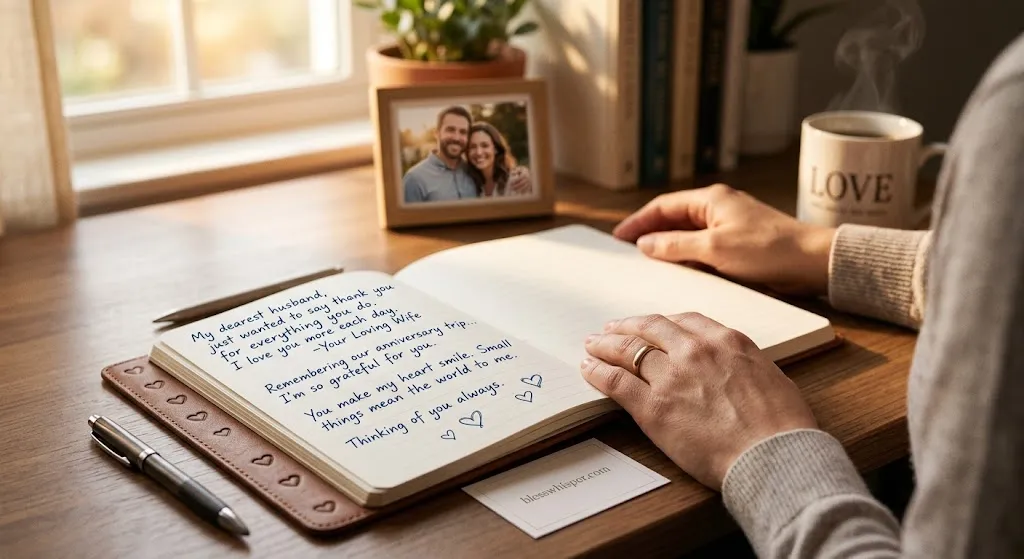 My dearest husband,
just wanted to say thank you
for everything you do.
I love you more each day.
-Your Loving Wife
Remembering our anniversary trip...
I'm so grateful for you.
You make my heart smile. Small
things mean the world to me.
Thinking of you always.
LOVE
blesswhisper.com